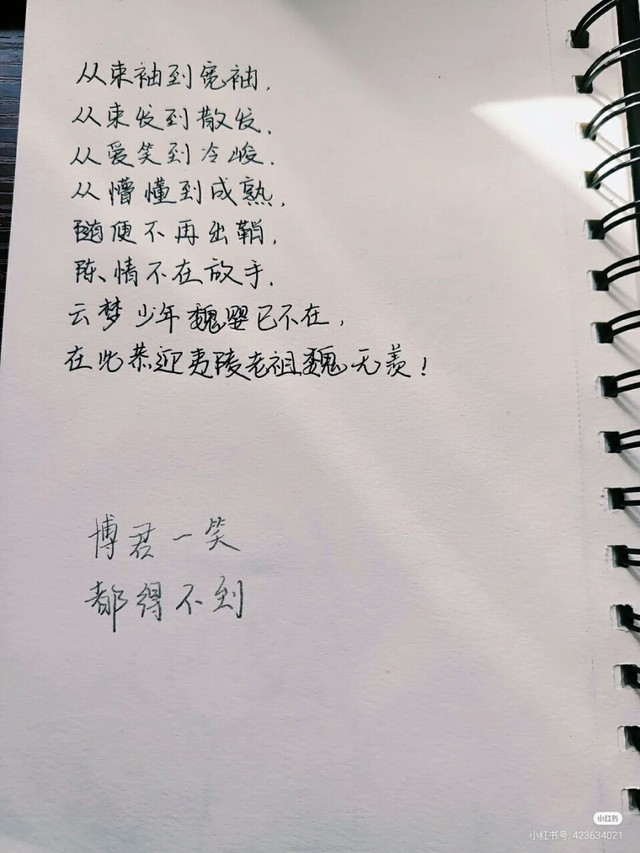 从束袖到宽袖,
从束发到散发,
从爱笑到冷峻.
从懵懂到成熟,
随便不再出鞘,
陈情不在放手.
云梦少年魏婴已不在,
在此恭迎夷陵老祖魏无羡!
博君一笑
都得不到
小红书
小红书号: 423634021